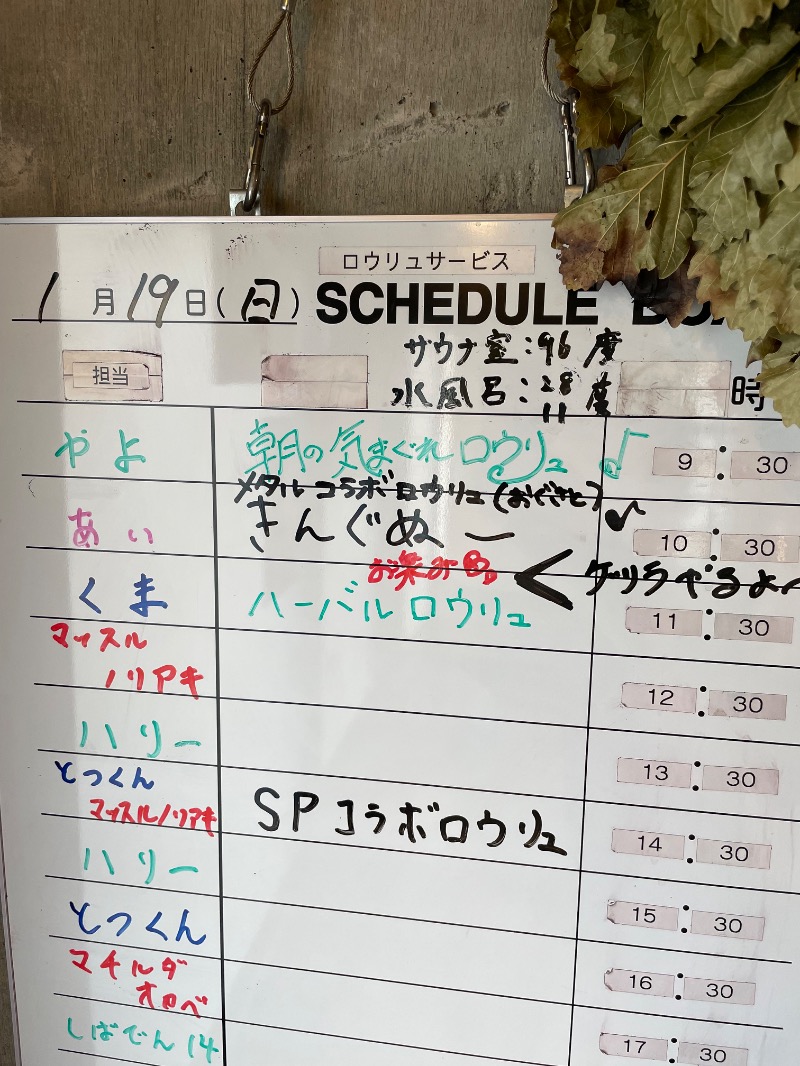 ロウリュサービス
1月19日(日) SCHEDULE
サウナ室：96度
担当
水風呂：28度
11
時
やよ 朝の気まぐれロウリュ♪ 9：30
メタルコラボロウリュ
あい きんぐぬー♪ 10：30
お茶み
くま ハーバルロウリュ 11：30
マッスルノリアキ 12：30
ハリー 13：30
とっくん
マッスルノリアキ SPコラボロウリュ 14：30
ハリー 15：30
とっくん 16：30
マチルダ
オロベ 17：30
しばでん14